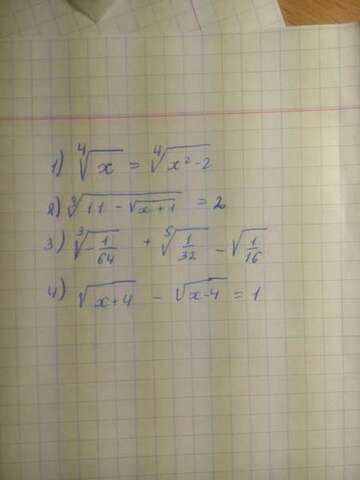 1) ⁴√x = ⁴√(x²-2)
2) ³√(11 - √(x+1)) = 2
3) ³√(-1/64) + ⁵√(1/32) - √(1/16)
4) √(x+4) - √(x-4) = 1